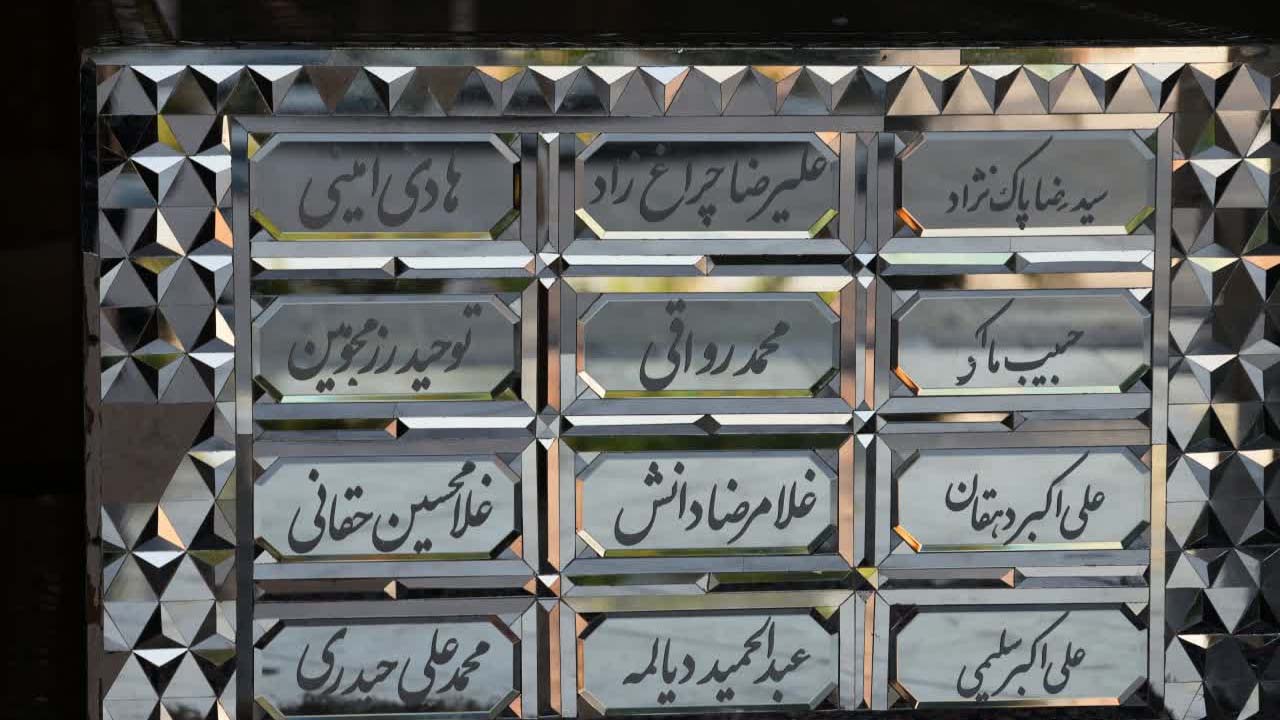 سید رضا پاک نژاد
علیرضا چراغ زاد
هادی امینی
حبیب ماکد
محمد رواقی
توحید رزمجوئین
علی اکبر دهقان
غلامرضا دانش
غلامحسین حقانی
علی اکبر سلیمی
عبدالحمید دیالمه
محمد علی حیدری